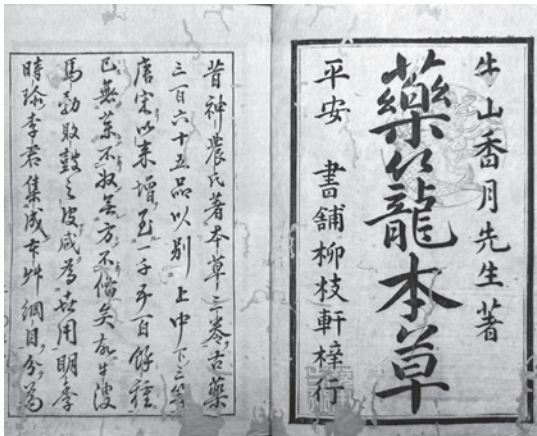 牛山香月先生著
藥籠本草
平安 書舗柳枝軒梓行
昔神農氏著本草三卷古藥
三百六十五品以別上中下三等
唐宋以来增至一千五百餘種
已無藥不收無方不備矣故牛溲
馬勃敗鼓之皮咸為世用明季
時珍李君集成本艸綱目分為